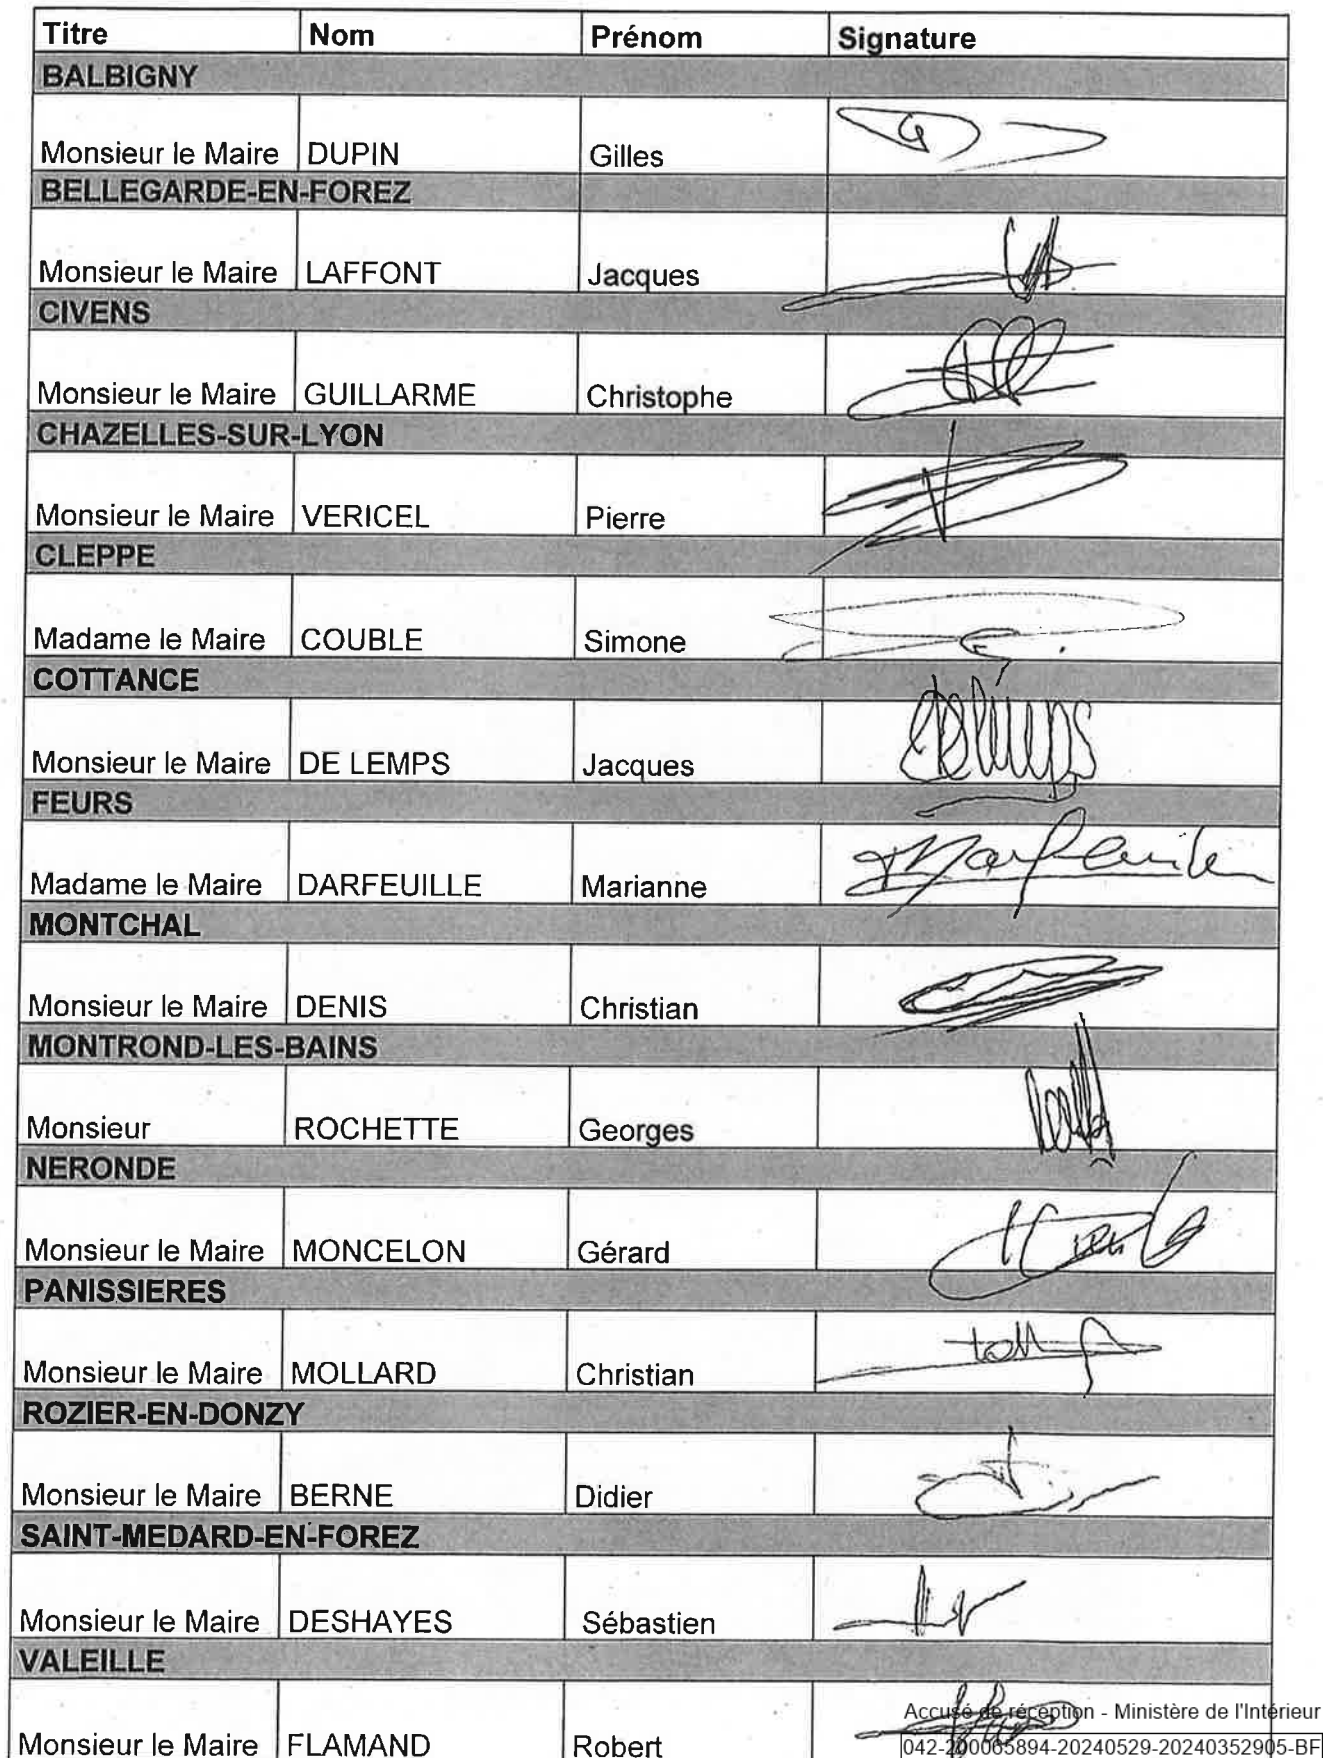 Titre Nom Prénom Signature
BALBIGNY
Monsieur le Maire DUPIN Gilles
BELLEGARDE-EN-FOREZ
Monsieur le Maire LAFFONT Jacques
CIVENS
Monsieur le Maire GUILLARME Christophe
CHAZELLES-SUR-LYON
Monsieur le Maire VERICEL Pierre
CLEPPE
Madame le Maire COUBLE Simone
COTTANCE
Monsieur le Maire DE LEMPS Jacques
FEURS
Madame le Maire DARFEUILLE Marianne
MONTCHAL
Monsieur le Maire DENIS Christian
MONTROND-LES-BAINS
Monsieur ROCHETTE Georges
NERONDE
Monsieur le Maire MONCELON Gérard
PANISSIERES
Monsieur le Maire MOLLARD Christian
ROZIER-EN-DONZY
Monsieur le Maire BERNE Didier
SAINT-MEDARD-EN-FOREZ
Monsieur le Maire DESHAYES Sébastien
VALEILLE
Accusé de réception - Ministère de l'Intérieur
Monsieur le Maire FLAMAND Robert
042-200065894-20240529-20240352905-BF